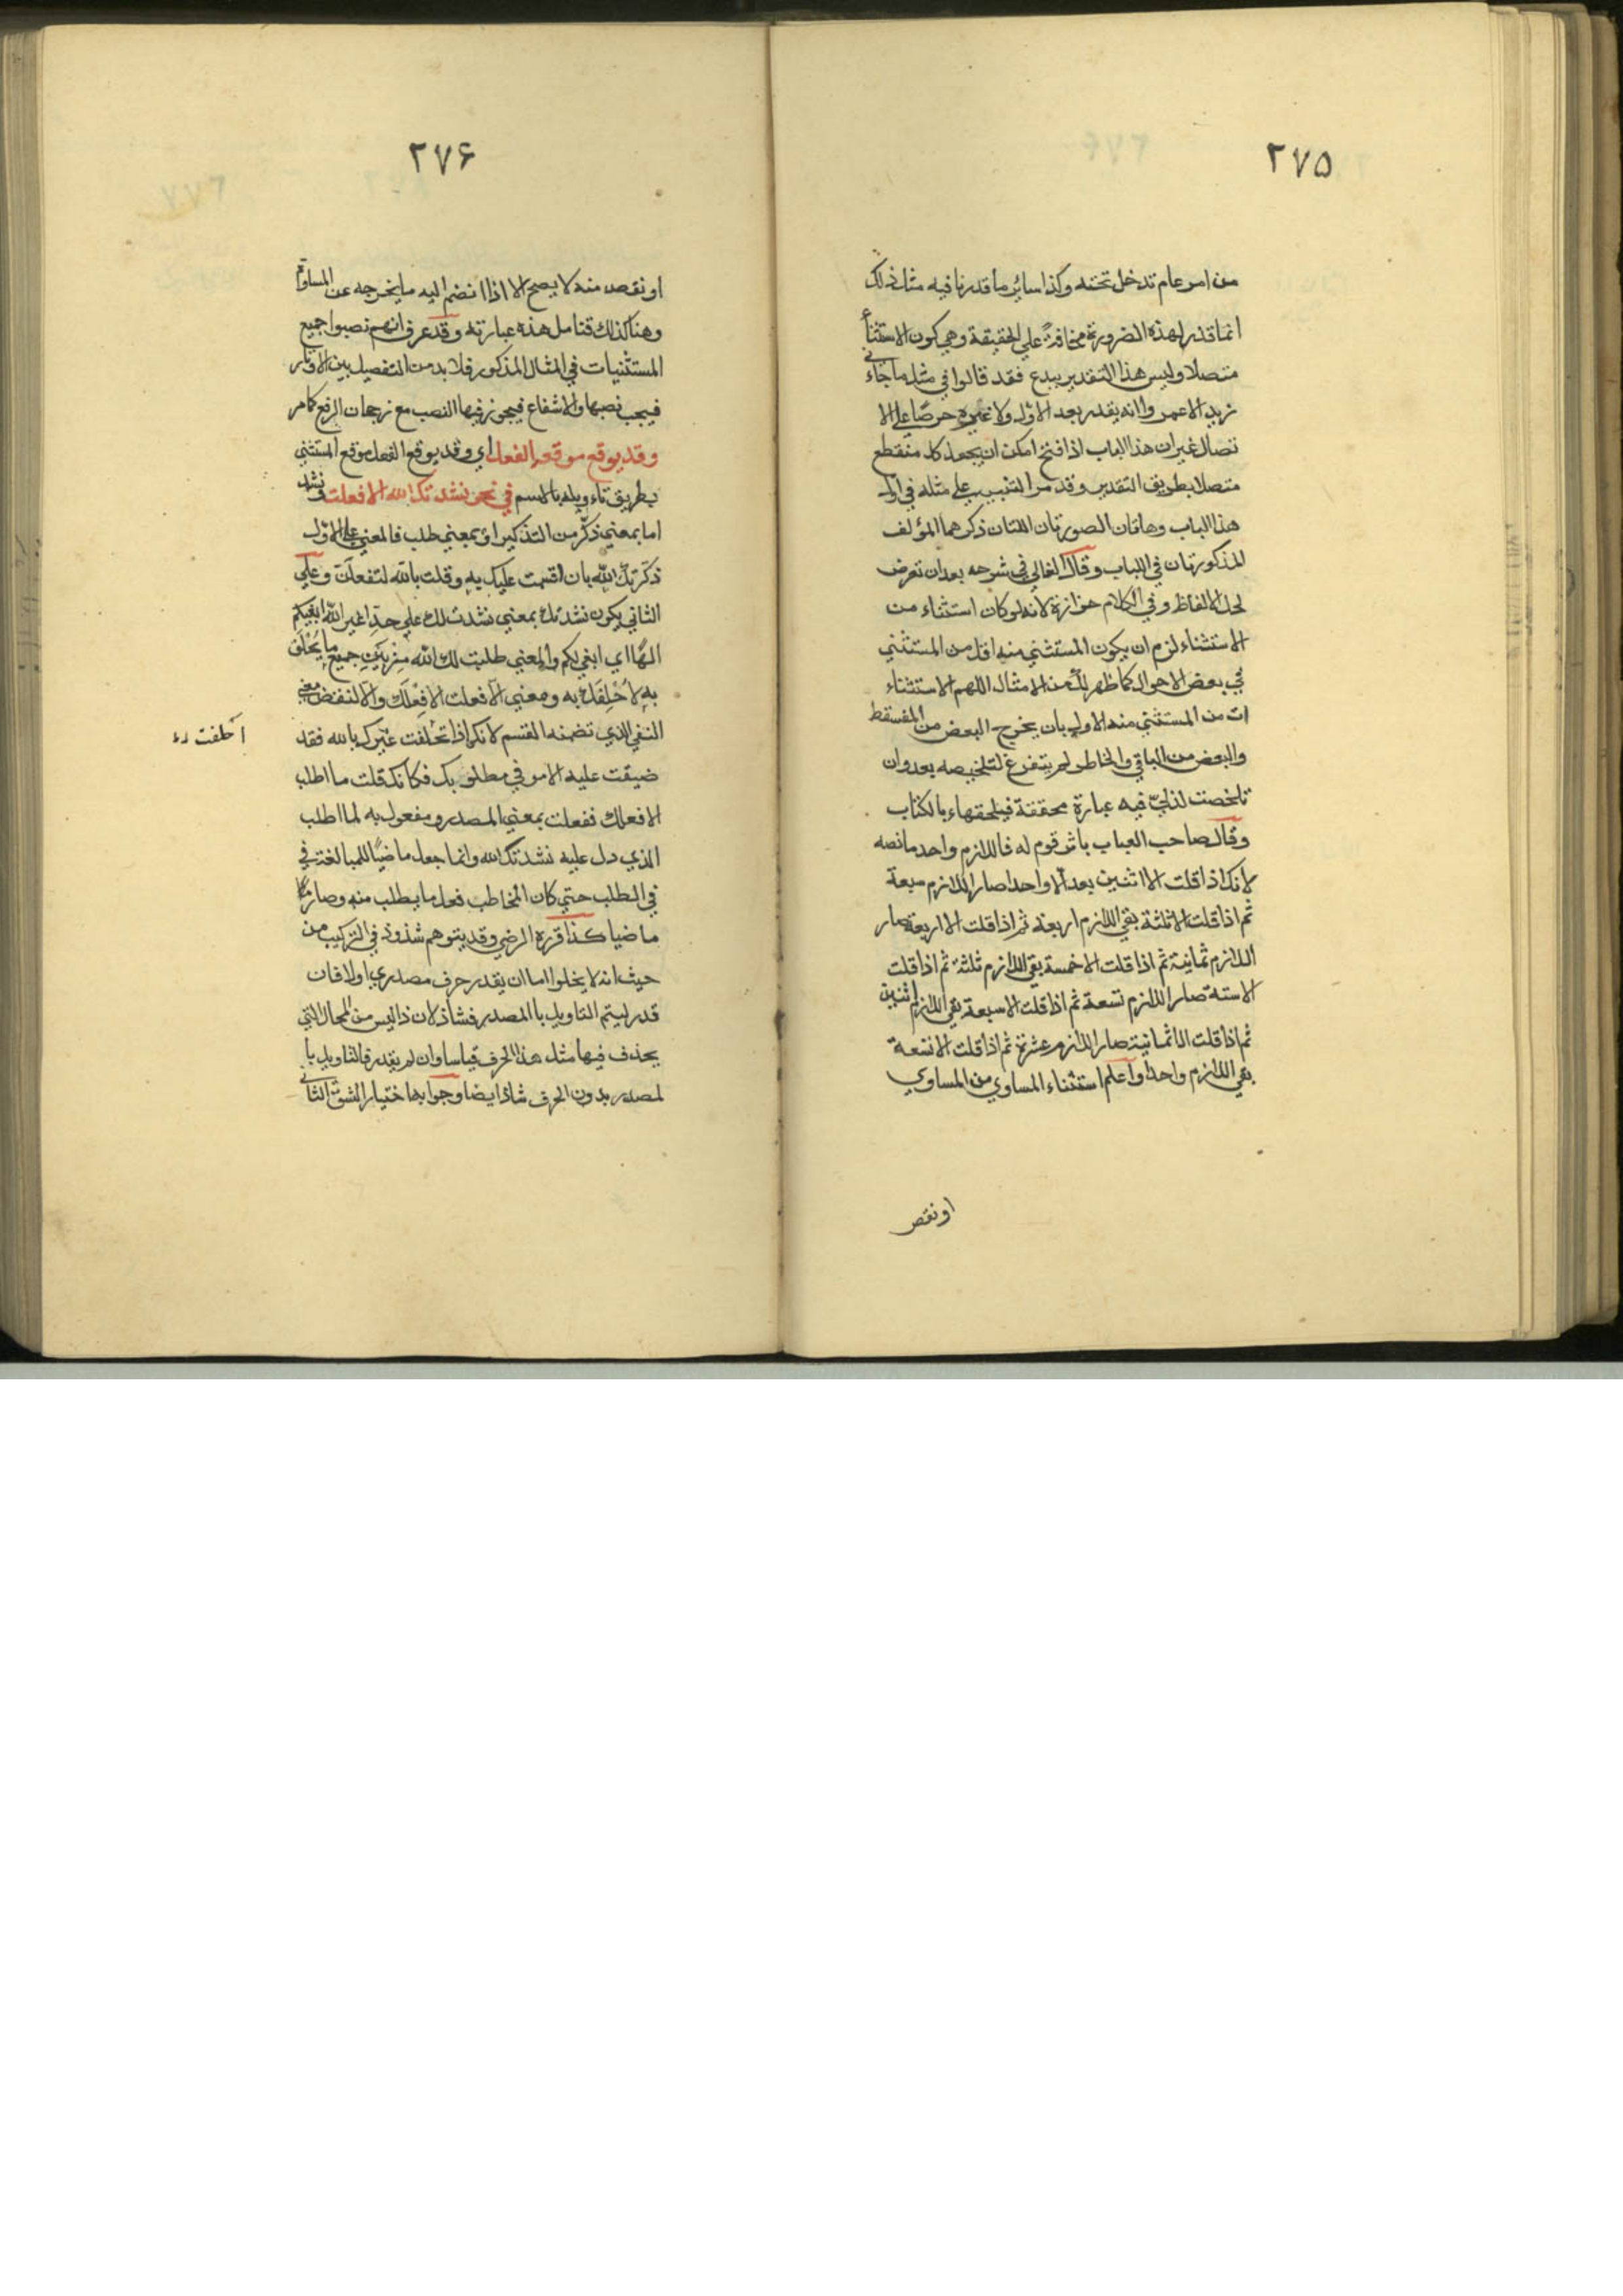 ٢٧٥
من امر عام تدخل تحته وكذا سائر ما قدرنا فيه مثل ذلك
انما قدر لهذه الضرورة مخافة على الحقيقة وهي كون الاستثناء
متصلا وليس هذا التقدير ببدع فقد قالوا في مثل ما جاءني
زيد الا عمر وانه يقدر بعد الاول ولا غيره حرصا على الا
تصال غير ان هذا الباب اذا فتح امكن ان يجعل كل منقطع
متصلا بطريق التقدير وقد مر التنبيه على مثله في اول
هذا الباب وهاتان الصورتان اللتان ذكرهما المؤلف
المذكورتان في اللباب وقال الغالي في شرحه بعد ان تعرض
لحل الالفاظ وفي الكلام حزازة لانه لو كان استثناء من
الاستثناء لزم ان يكون المستثني منه اقل من المستثني
في بعض الاحوال كما ظهر لك من الامثال اللهم الا استثناء
ات من المستثني منه الاول بان يخرج البعض من المسقط
والبعض من الباقي والخاطر لم يتفرغ لتلخيصه بعد وان
تلخصت لذلك فيه عبارة محققة فيلحقها بالكتاب
وقال صاحب العباب باثر قوم له فاللازم واحد ما نصه
لانك اذا قلت الا اثنين بعد الا واحدا صار اللازم سبعة
ثم اذا قلت الا ثلثة بقي اللازم اربعة ثم اذا قلت الا اربعة صار
اللازم ثمانية ثم اذا قلت الا خمسة بقي اللازم ثلثة ثم اذا قلت
الا ستة صار اللازم تسعة ثم اذا قلت الا سبعة بقي اللازم اثنين
ثم اذا قلت الا ثمانية صار اللازم عشرة ثم اذا قلت الا تسعة
بقي اللازم واحدا واعلم استثناء المساوي من المساوي
او نقص
٢٧۶
او نقص منه لا يصح الا اذا انضم اليه ما يخرجه عن المساواة
وهنا كذلك فتامل هذه عبارته وقد عرف انهم نصبوا جميع
المستثنيات في المثال المذكور فلا بد من التفصيل بين الاوتار
فيجب نصبها والاشفاع فيجوز فيها النصب مع رجحان الرفع كما مر
وقد يوقع موقعه الفعل اي وقد يوقع الفعل موقع المستثني
بطريق تاء ويله بالاسم في نحو نشدتك الله الا فعلت ف نشد
اما بمعني ذكّر من التذكير او بمعني طلب فالمعني على الاول
ذكرتك الله بان اقسمت عليك به وقلت بالله لتفعلن وعلي
الثاني يكون نشدتك بمعني نشدت لك علي حد اغير الله ابغيكم
الها اي ابغي لكم والمعني طلبت لك الله من بين جميع ما يُحْلَفُ
به لاُحْلِفَك به ومعني الا فعلت الا فِعْلَك والا لنقض معني
النفي الذي تضمنه القسم لانك اذا حلفت غيرك بالله فقد
ضيقت عليه الامر في مطلوبك فكانك قلت ما اطلب
الا فعلك ففعلت بمعني المصدر ومفعول به لما اطلب
الذي دل عليه نشدتك الله وانما جعل ماضيا للمبالغة في
في الطلب حتي كان المخاطب فعل ما يطلب منه وصار
ماضيا كذا قرره الرضي وقد يتوهم شذوذ في التركيب من
حيث انه لا يخلوا اما ان يقدر حرف مصدري اولا فان
قدر ليتم التاويل با المصدر فشاذ لان ذا ليس من المحال التي
يحذف فيها مثل هذا الحرف قياسا وان لم يقدر فالتاويل با
لمصدر بدون الحرف شاذ ايضا وجوابها ختيار الشق الثاني
احلفت